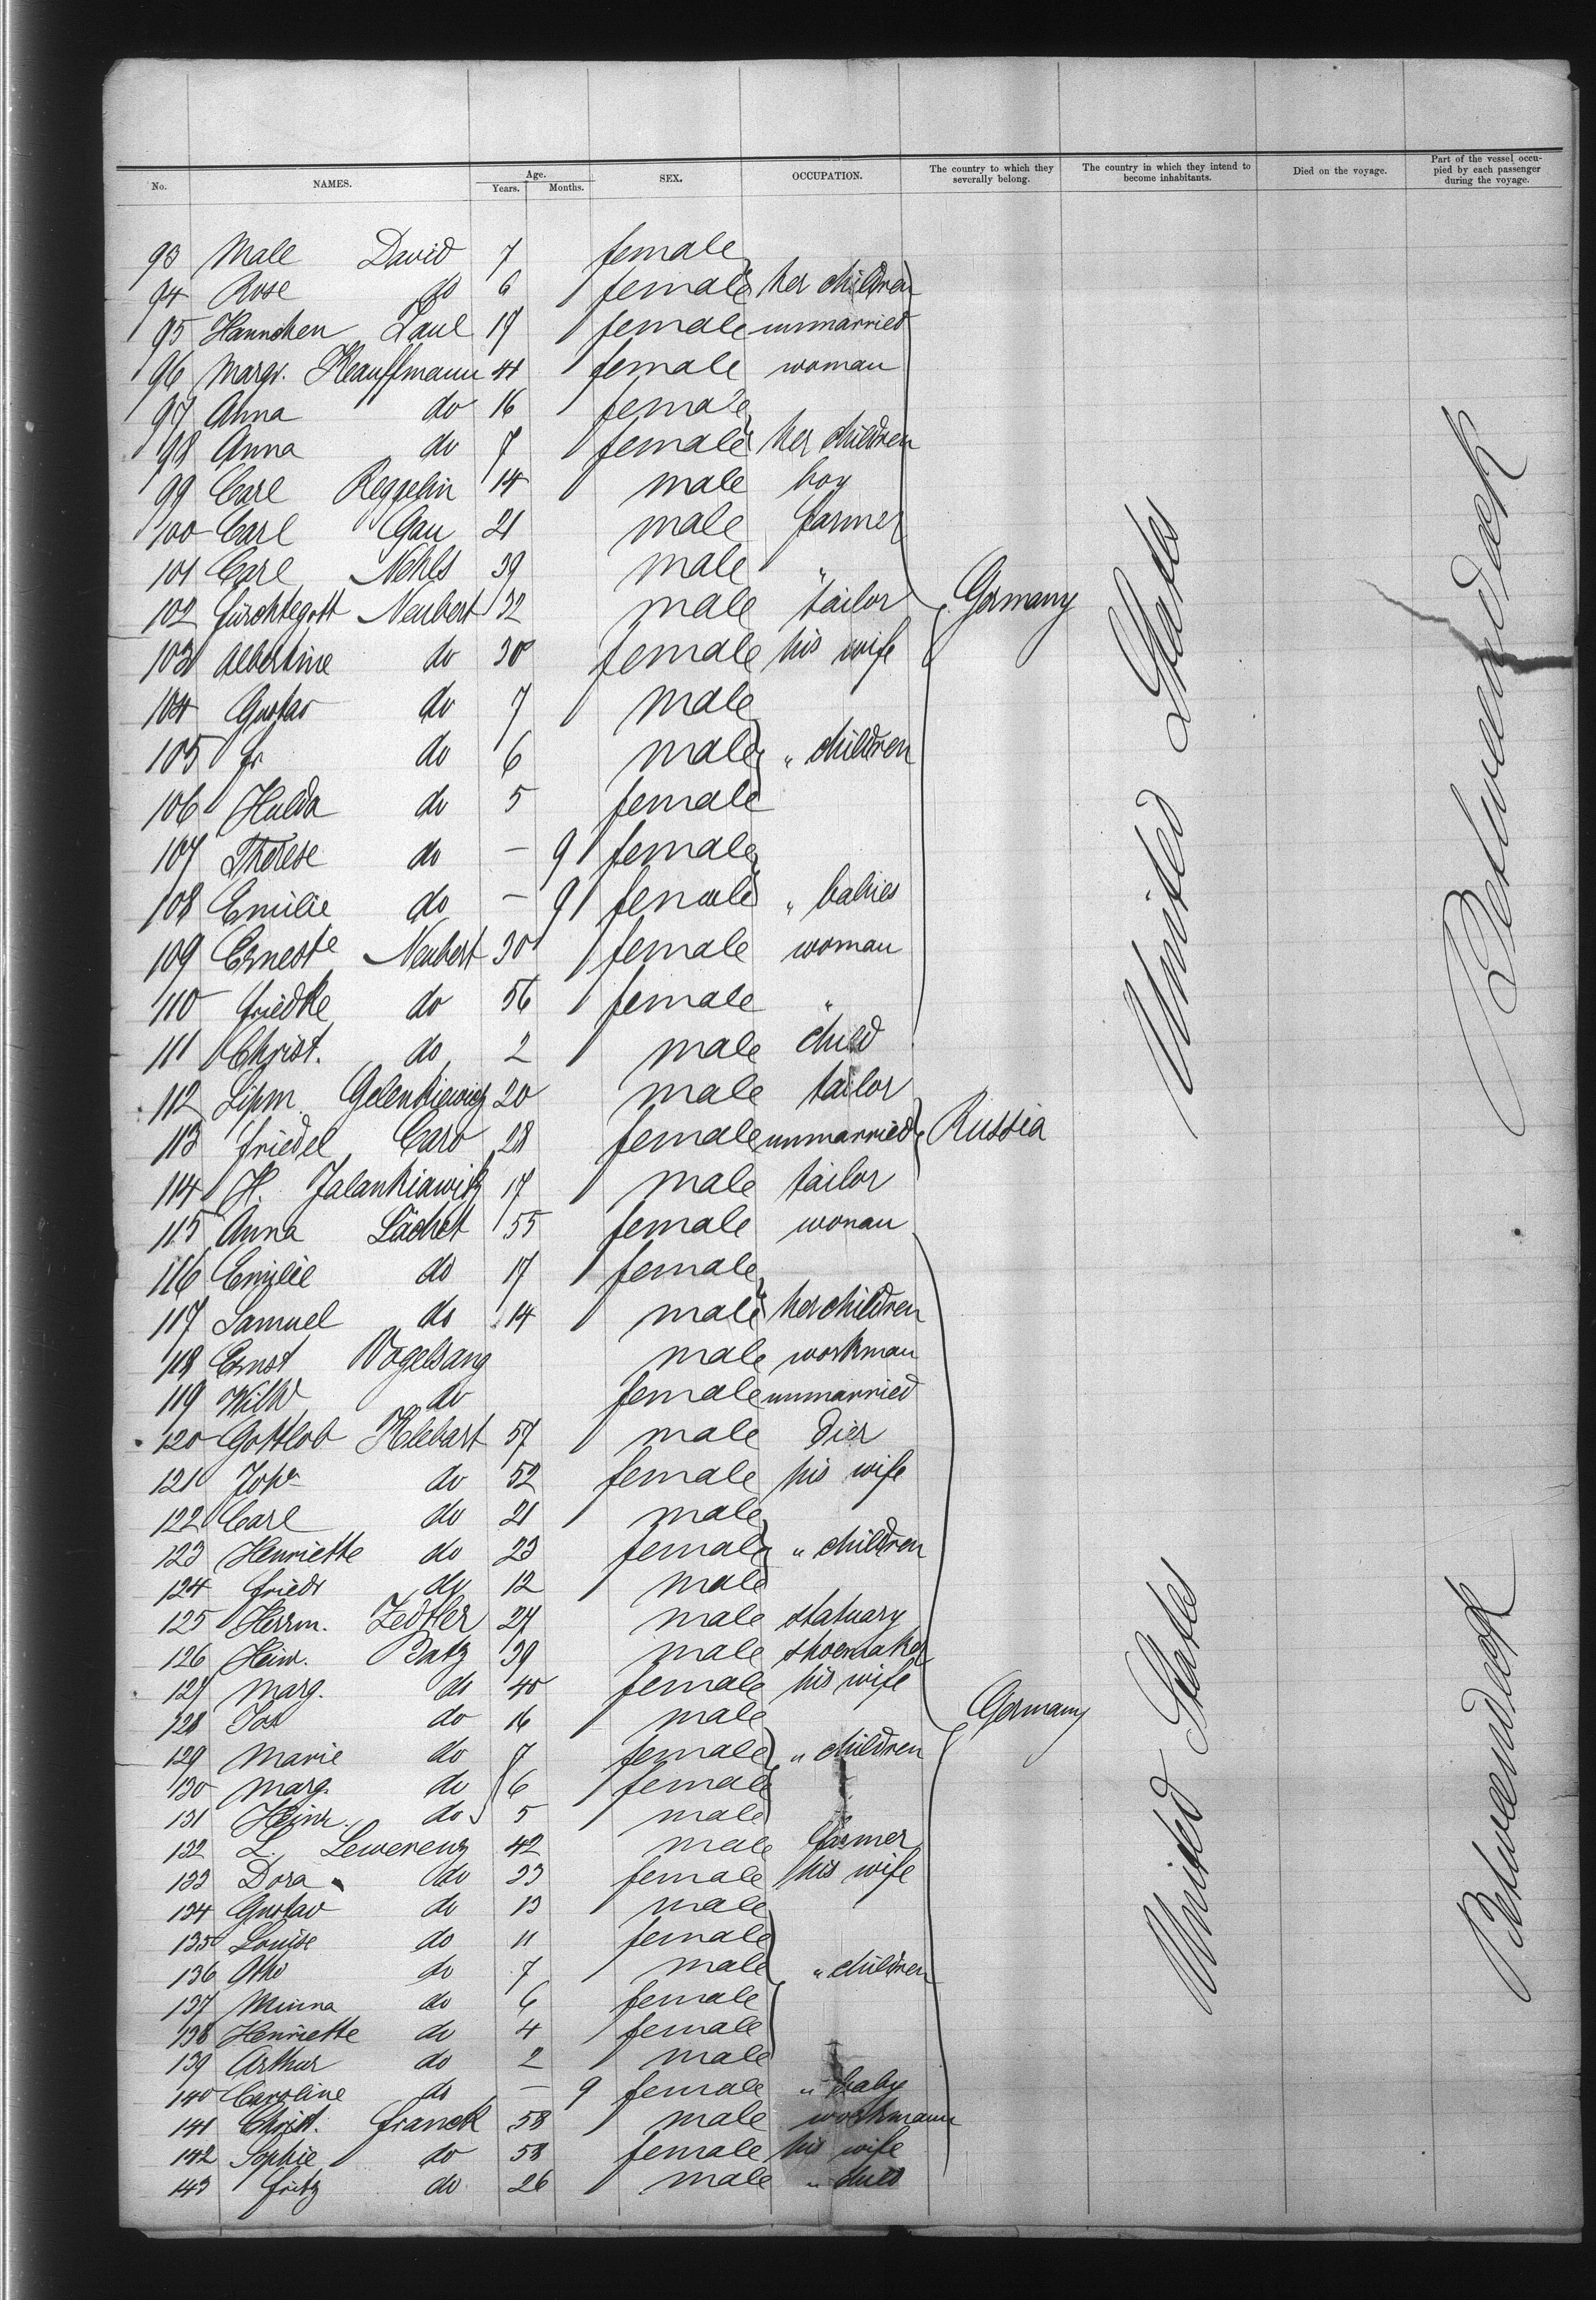 No. NAMES. Age. Years. Months. SEX. OCCUPATION. The country to which they severally belong. The country in which they intend to become inhabitants. Died on the voyage. Part of the vessel occupied by each passenger during the voyage.
93 Male David 7 female
94 Rose do 6 female her children
95 Hannchen Paul 19 female unmarried
96 Margr. Kauffmann 41 female woman
97 Anna do 16 female
98 Anna do 7 female her children
99 Carl Reggelin 14 male boy
100 Carl Gau 21 male farmer
101 Carl Nehls 39 male "
102 Fürchtegott Neubert 32 male tailor Germany
103 Albertine do 30 female his wife
104 Gustav do 7 male
105 Fr do 6 male " children
106 Hulda do 5 female
107 Therese do — 9 female
108 Emilie do — 9 female " babies
109 Ernestе Neubert 30 female woman
110 Friedke do 56 female "
111 Christ. do 2 male child
112 Lipm. Gelenkiewicz 20 male tailor
113 Friedel Caro 28 female unmarried Russia
114 H. Jalankiawitz 17 male tailor
115 Anna Lächet 55 female wonan
116 Emilie do 17 female
117 Samuel do 14 male her children
118 Ernst Vogelsang male workman
119 Wilh do female unmarried
120 Gottlob Klebart 57 male Dier
121 do 52 female his wife
122 Carl do 21 male
123 Henriette do 23 female " children
124 Friedr do 12 male
125 Herrm. Zedtler 27 male statuary
126 Heinr. Batz 39 male shoemaker
127 Marg. do 40 female his wife
128 do 16 male Germany
129 Marie do 7 female " children
130 Marg. do 6 female
131 Heinr. do 5 male
132 L. Lewerenz 42 male farmer
133 Dora do 33 female his wife
134 Gustav do 13 male
135 Louise do 11 female
136 Otto do 7 male " children
137 Minna do 6 female
138 Henriette do 4 female
139 Arthur do 2 male
140 Caroline do — 9 female " baby
141 Christ. Franck 58 male workmann
142 Sophie do 58 female his wife
143 Fritz do 26 male " child
United States
Betweendeck
United States
Betweendeck